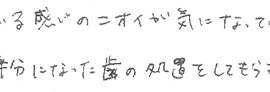 いる感じのニオイが気になって
半分になった歯の処置をしてもら